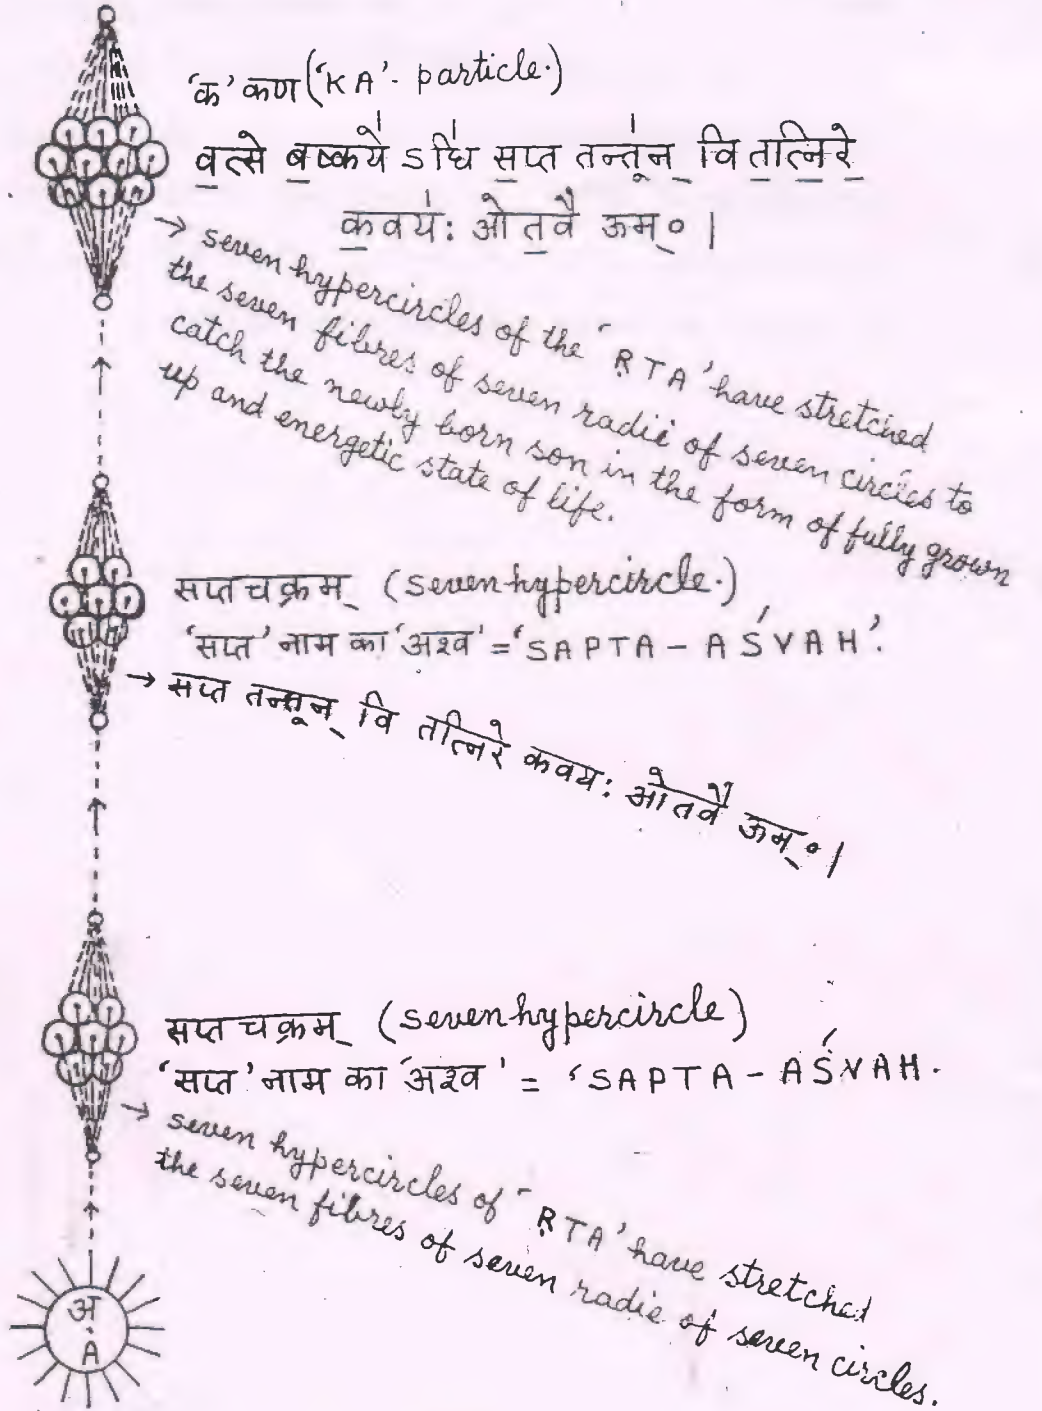 'क' कण ('KA'- particle.)
व॒त्से ब॒ष्कये॑ ऽधि॑ स॒प्त तन्तू॑न्॒ वि त॒त्नि॒रे॒
क॒वय॑ः ओत॒वै ऊम्० ।
→ seven hypercircles of the 'ṚTA' have stretched
the seven fibres of seven radie of seven circles to
catch the newly born son in the form of fully grown
up and energetic state of life.
सप्तचक्रम् (seven-hypercircle.)
'सप्त' नाम का 'अश्व' = 'SAPTA - AŚVAH'.
→ सप्त तन्तून् वि तत्निरे कवयः ओतवै ऊम्० ।
सप्तचक्रम् (seven hypercircle)
'सप्त' नाम का 'अश्व' = 'SAPTA - AŚVAH.
→ seven hypercircles of 'ṚTA' have stretched
the seven fibres of seven radie of seven circles.
अ
A